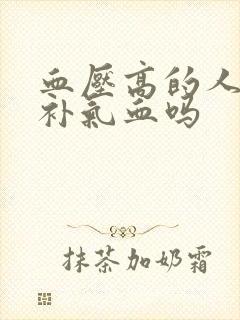 血壓高的人
补氣血吗
抹茶加奶霜